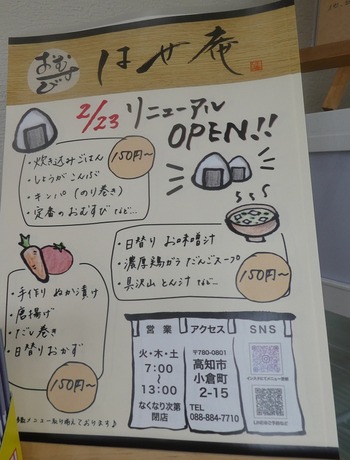 おむすび
はせ庵
2/23 リニューアル
OPEN!!
・炊き込みごはん
・しょうが こんぶ
・キンパ(のり巻き)
・定番のおむすび など…
150円~
・日替り お味噌汁
・濃厚鶏ガラ だんごスープ
・具沢山 とん汁 など…
150円~
・手作り ぬか漬け
・唐揚げ
・だし巻き
・日替りおかず
150円~
営業
火・木・土
7:00
~
13:00
なくなり次第
閉店
アクセス
〒780-0801
高知市
小倉町
2-15
TEL
088-884-7710
SNS
メニュー取り揃えております♪